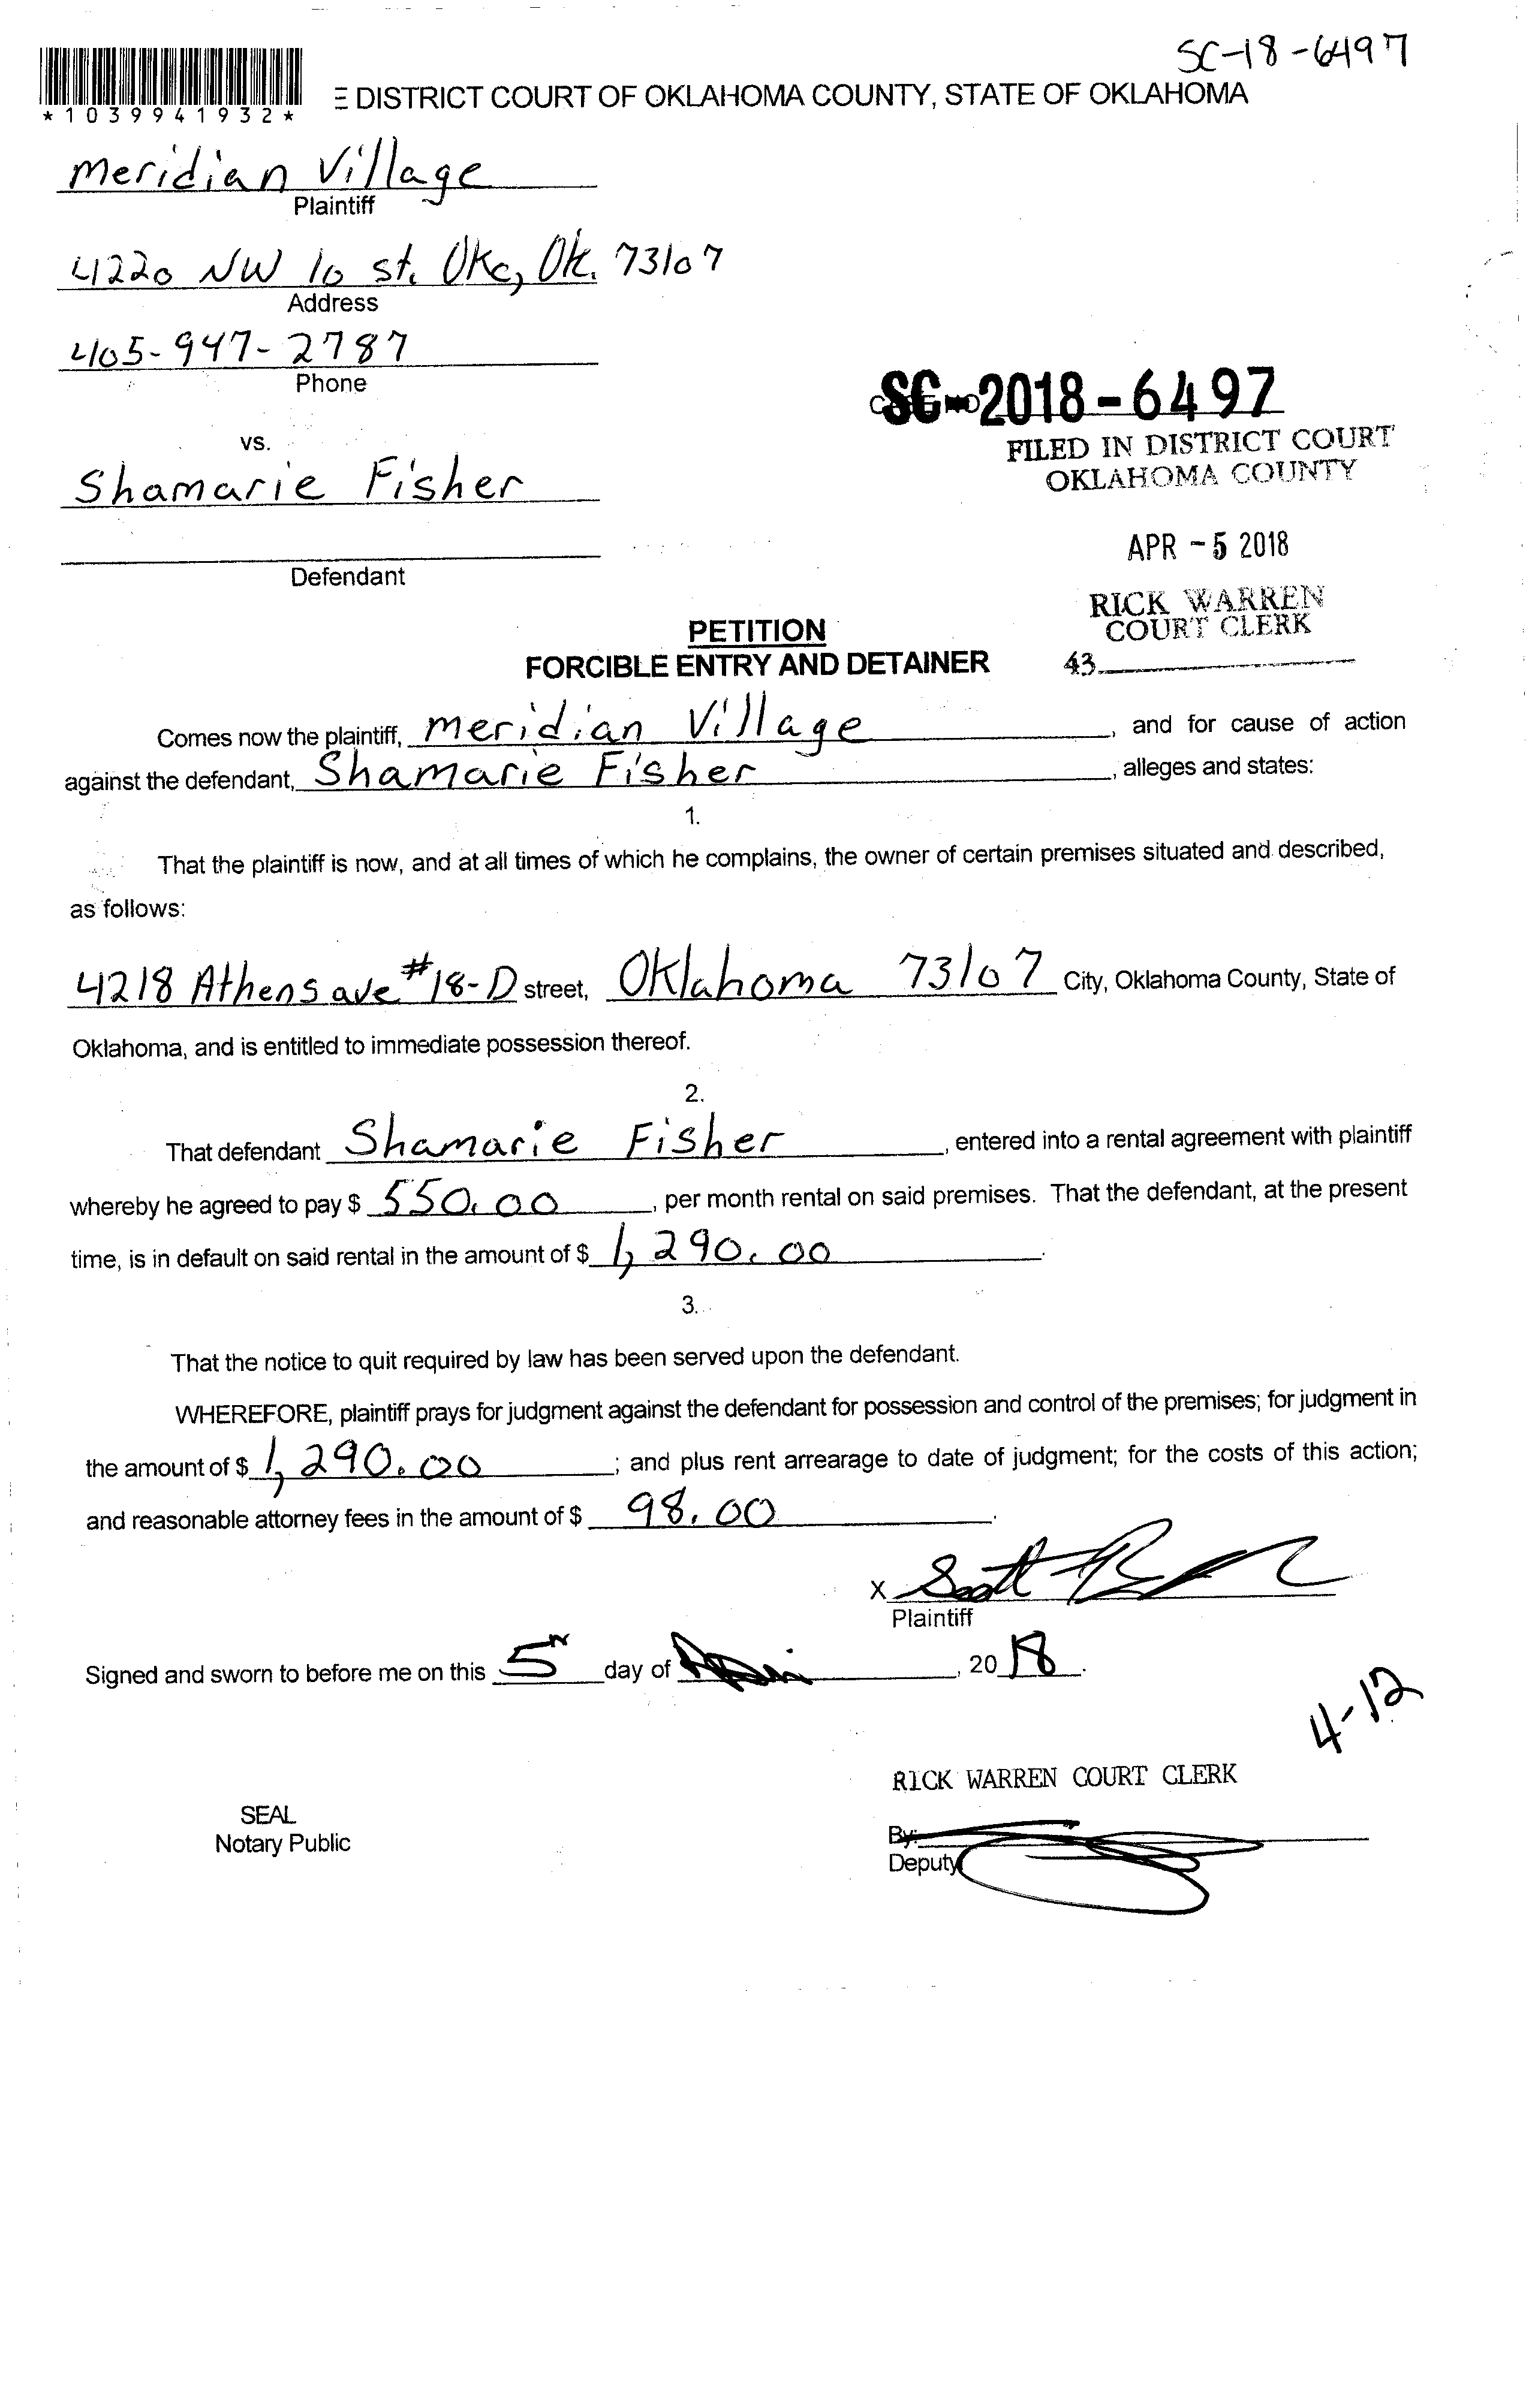 SC-18-6497
*1039941932*
E DISTRICT COURT OF OKLAHOMA COUNTY, STATE OF OKLAHOMA
Meridian Village
Plaintiff
4220 NW 10 st. Okc, Ok. 73107
Address
405-947-2787
Phone
SC-2018-6497
FILED IN DISTRICT COURT
OKLAHOMA COUNTY
vs.
Shamarie Fisher
APR -5 2018
Defendant
RICK WARREN
COURT CLERK
43
PETITION
FORCIBLE ENTRY AND DETAINER
Comes now the plaintiff, Meridian Village, and for cause of action
against the defendant, Shamarie Fisher, alleges and states:
1.
That the plaintiff is now, and at all times of which he complains, the owner of certain premises situated and described,
as follows:
4218 Athens ave #18-D street, Oklahoma 73107 City, Oklahoma County, State of
Oklahoma, and is entitled to immediate possession thereof.
2.
That defendant Shamarie Fisher, entered into a rental agreement with plaintiff
whereby he agreed to pay $ 550.00, per month rental on said premises. That the defendant, at the present
time, is in default on said rental in the amount of $ 1,290.00.
3.
That the notice to quit required by law has been served upon the defendant.
WHEREFORE, plaintiff prays for judgment against the defendant for possession and control of the premises; for judgment in
the amount of $ 1,290.00; and plus rent arrearage to date of judgment; for the costs of this action;
and reasonable attorney fees in the amount of $ 98.00.
X Scott
Plaintiff
Signed and sworn to before me on this 5 day of , 2018.
4-12
RICK WARREN COURT CLERK
SEAL
Notary Public
By:
Deputy